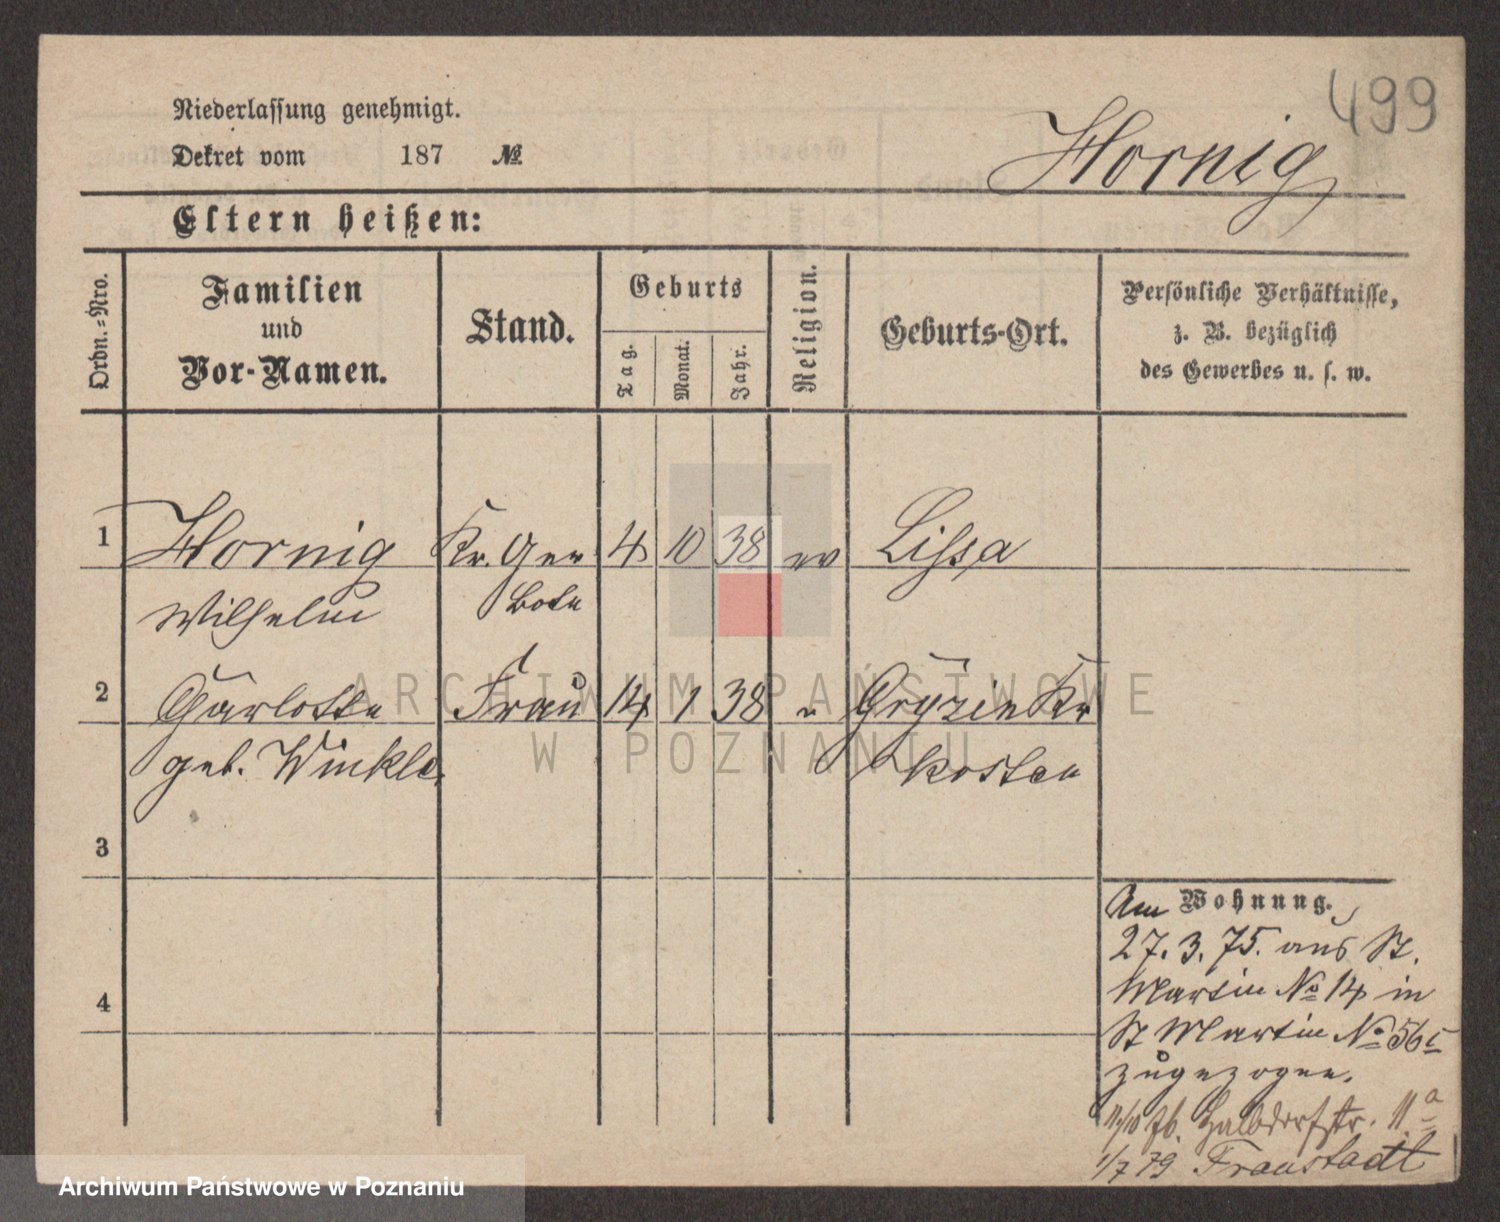 499
Niederlassung genehmigt.
Dekret vom 187 №
Hornig
Eltern heißen:
Ordn.-Nro.
Familien
und
Vor-Namen.
Stand.
Geburts
Tag.
Monat.
Jahr.
Religion.
Geburts-Ort.
Persönliche Verhältnisse,
z. B. bezüglich
des Gewerbes u. s. w.
1 Hornig Kr. Ger 4 10 38 ev Lissa
Wilhelm Bote
2 Charlotte Frau 14 1 38 Gryzin Kr
geb. Winkler Kosten
3
4
Wohnung.
Am
27. 3. 75. aus St.
Martin № 14 in
St Martin № 56
zugezogen.
11/10 76. Halbdorfstr. 11 a
1/7 79 Fraustadt
ARCHIWUM PAŃSTWOWE
W POZNANIU
Archiwum Państwowe w Poznaniu